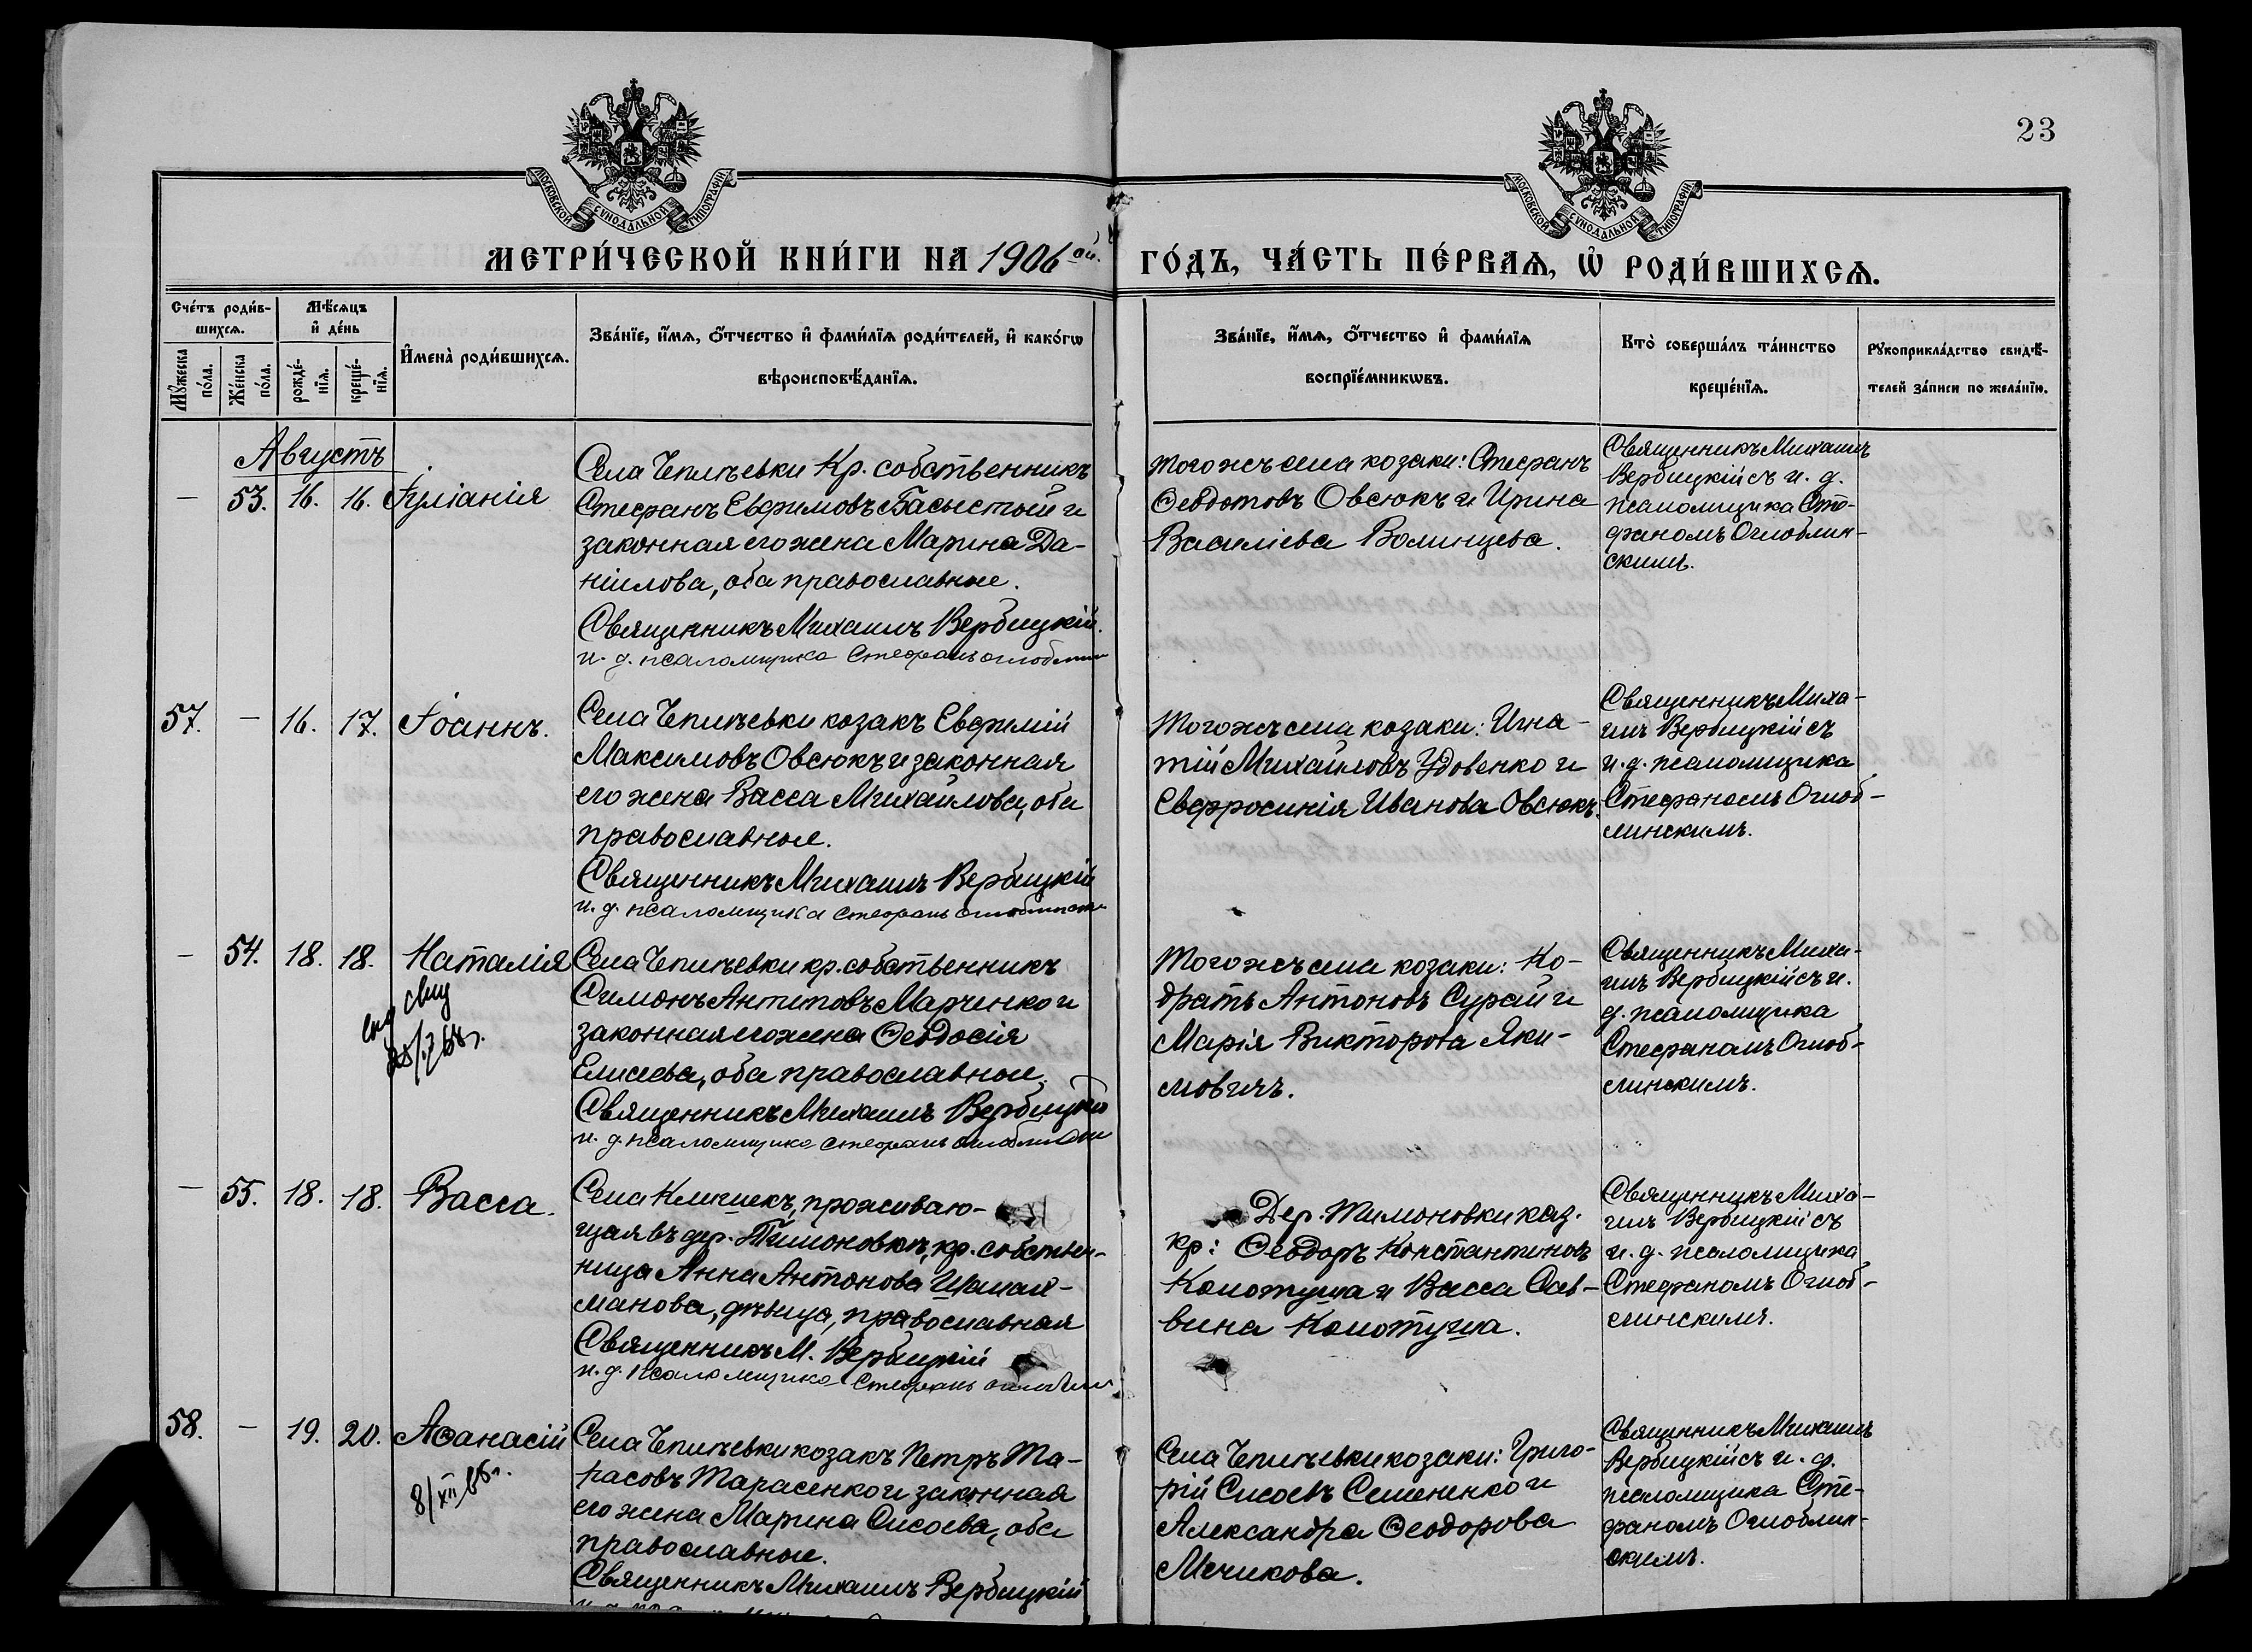 23
МОСКОВСКОЙ СѴНОДАЛЬНОЙ ТИПОГРАФІИ
МОСКОВСКОЙ СѴНОДАЛЬНОЙ ТИПОГРАФІИ
МЕТРИ́ЧЕСКОЙ КНИ́ГИ НА 1906 ой. ГО́ДЪ, ЧА́СТЬ ПЕ́РВАѦ, Ѡ҆ РОДИ́ВШИХСѦ.
Сче́тъ роди́в-
шихсѧ.
Мꙋ́жеска
по́ла.
Же́нска
по́ла.
Мѣ́сѧцъ
и҆ де́нь
рожде́-
нїѧ.
креще́-
нїѧ.
И҆мена̀ роди́вшихсѧ.
Зва́нїе, и҆́мѧ, ѻ҆́тчество и҆ фами́лїѧ роди́телей, и҆ како́гѡ
вѣроисповѣ́данїѧ.
Зва́нїе, и҆́мѧ, ѻ҆́тчество и҆ фами́лїѧ
воспрїе́мникѡвъ.
Кто̀ соверша́лъ та́инство
креще́нїѧ.
Рꙋкоприкла́дство свидѣ́-
телей за́писи по жела́нїю.
Августъ
— 53. 16. 16. Іуліанія
Села Чепліевки Кр. собственникъ
Стефанъ Евфимовъ Басыстый и
законная его жена Марина Да-
ніилова, оба православные.
Священникъ Михаилъ Вербицкій.
и. д. псаломщика Стефанъ Оглоблин
Того жъ села козаки: Стефанъ
Ѳеодотовъ Овсюкъ и Ирина
Василіева Волинцева.
Священникъ Михаилъ
Вербицкій съ и. д.
псаломщика Сте-
фаномъ Оглоблин-
скимъ.
57. — 16. 17. Іоаннъ.
Села Чепліевки козакъ Евфимій
Максимовъ Овсюкъ и законная
его жена Васса Михайлова, оба
православные.
Священникъ Михаилъ Вербицкій
и. д. псаломщика Стефанъ Оглоблинск
Того жъ села козаки: Игна-
тій Михайловъ Удовенко и
Евфросинія Иванова Овсюкъ.
Священникъ Миха-
илъ Вербицкій съ
и. д. псаломщика
Стефаномъ Оглоб-
линскимъ.
— 54. 18. 18. Наталія
Села Чепліевки кр. собственникъ
Симонъ Антиповъ Марченко и
законная его жена Ѳеодосія
Елисеева, оба православные.
Священникъ Михаилъ Вербицкій
и. д. псаломщика Стефанъ Оглоблинск
Того жъ села козаки: Ко-
дратъ Антоновъ Сурай и
Марія Викторова Яки-
мовичъ.
Священникъ Миха-
илъ Вербицкій съ и.
д. псаломщика
Стефаномъ Оглоб-
линскимъ.
— 55. 18. 18. Васса.
Села Клишекъ, проживаю-
щая въ дер. Тимоновкѣ, кр. собствен-
ница Анна Антонова Шалай-
манова, дѣвица, православная
Священникъ М. Вербицкій
и. д. псаломщика Стефанъ Оглоблин
Дер. Тимоновки каз.
кр: Ѳеодоръ Константиновъ
Колотуша и Васса Сав-
вина Колотуша.
Священникъ Миха-
илъ Вербицкій съ
и. д. псаломщика
Стефаномъ Оглоб-
линскимъ.
58. — 19. 20. Аѳанасій
8/XII 65г.
Села Чепліевки козакъ Петръ Та-
расовъ Тарасенко и законная
его жена Марина Сисоева, оба
православные.
Священникъ Михаилъ Вербицкій
Села Чепліевки козаки: Григо-
рій Сисоевъ Семененко и
Александра Ѳеодорова
Мечикова.
Священникъ Михаилъ
Вербицкій съ и. д.
псаломщика Сте-
фаномъ Оглоблин-
скимъ.